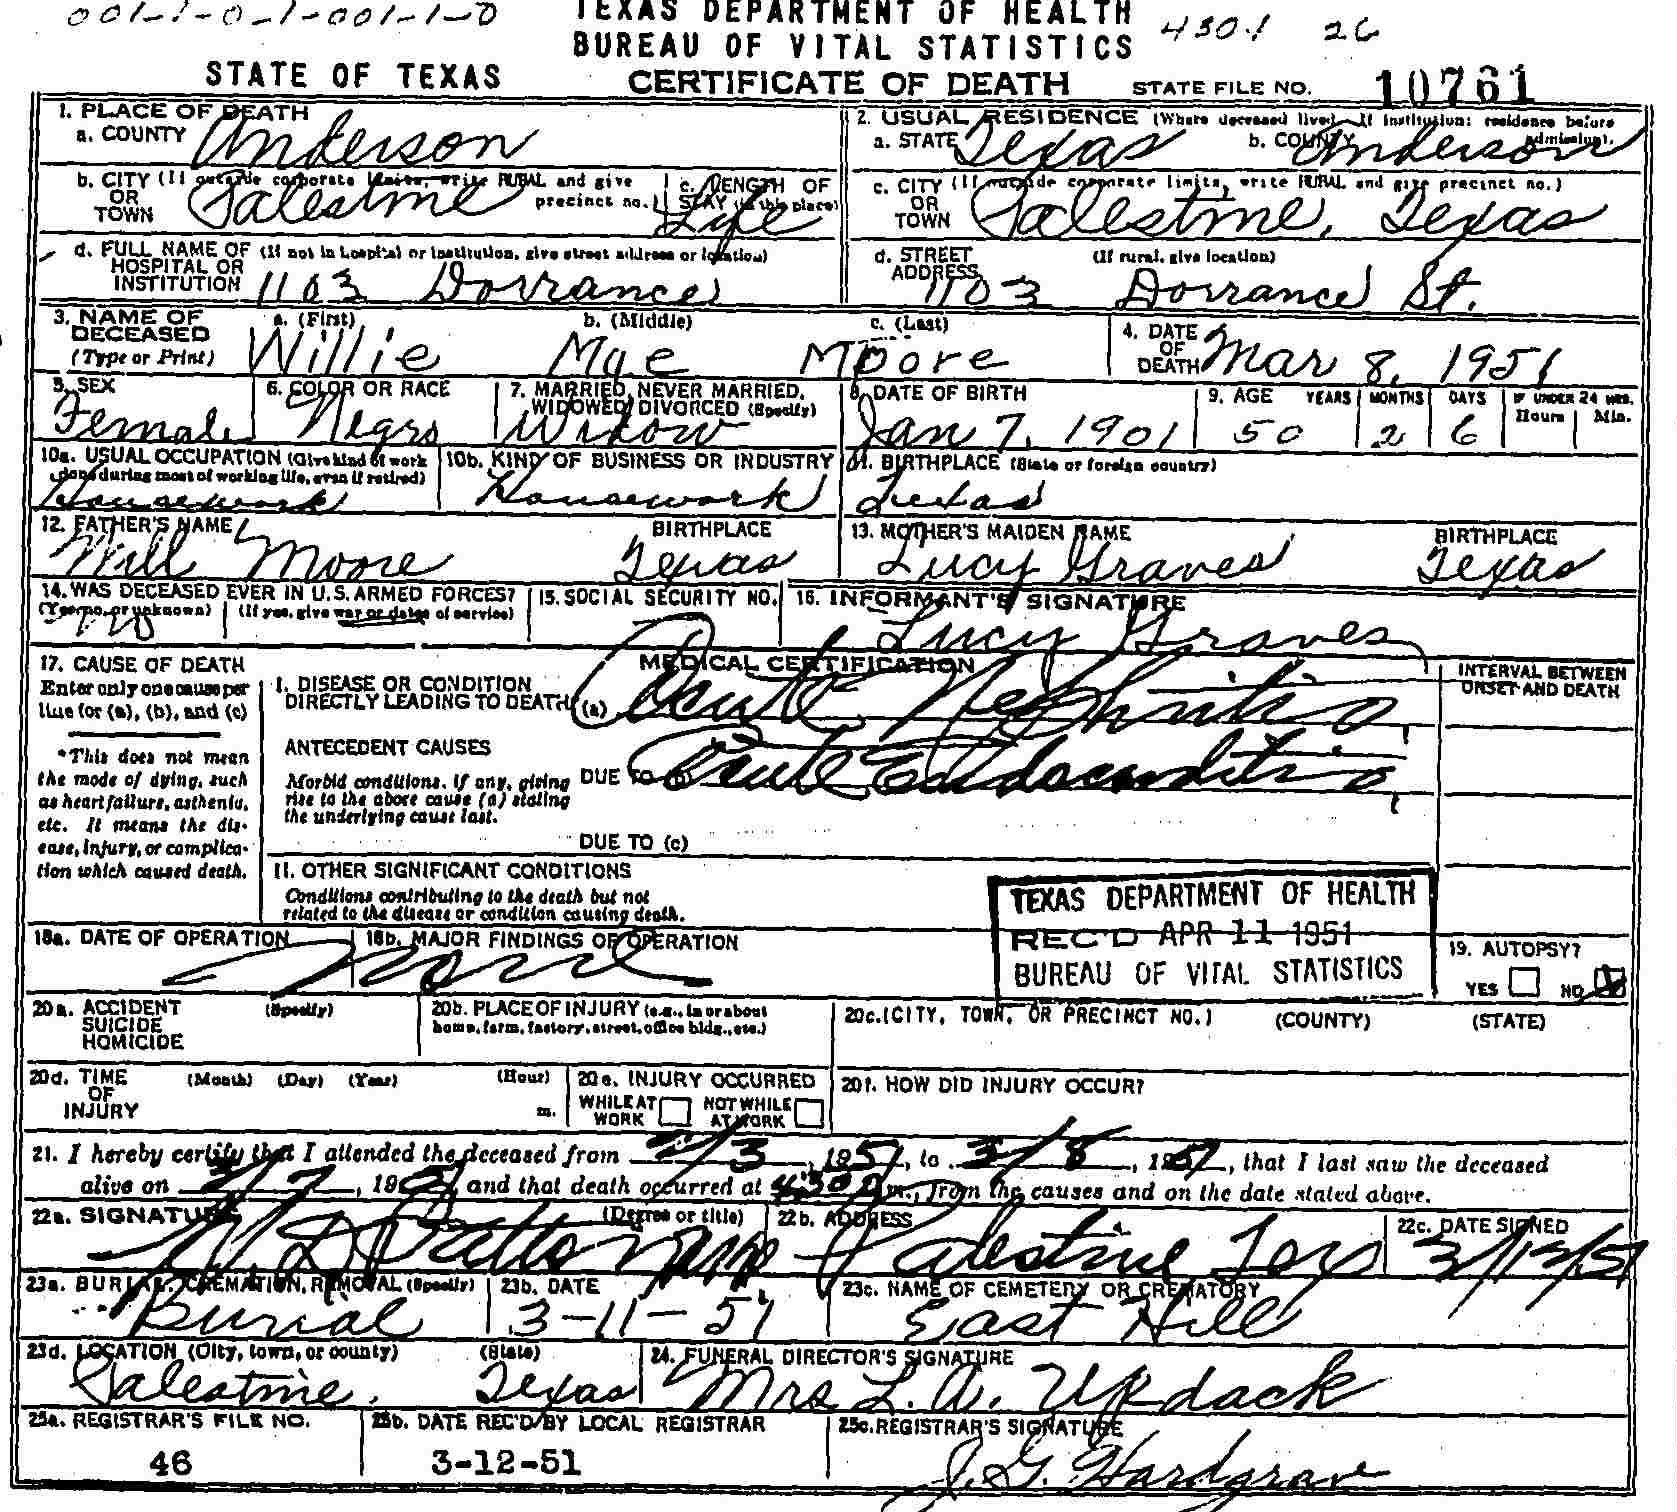 001-1-0-1-001-1-0
TEXAS DEPARTMENT OF HEALTH
BUREAU OF VITAL STATISTICS
4301 26
STATE OF TEXAS
CERTIFICATE OF DEATH
STATE FILE NO. 10761
1. PLACE OF DEATH
a. COUNTY Anderson
2. USUAL RESIDENCE (Where deceased lived. If institution: residence before admission).
a. STATE Texas b. COUNTY Anderson
b. CITY (If outside corporate limits, write RURAL and give precinct no.)
OR
TOWN Palestine
c. LENGTH OF STAY (in this place) Life
c. CITY (If outside corporate limits, write RURAL and give precinct no.)
OR
TOWN Palestine, Texas
d. FULL NAME OF (If not in hospital or institution, give street address or location)
HOSPITAL OR
INSTITUTION 1103 Dorrance
d. STREET (If rural, give location)
ADDRESS 1103 Dorrance St.
3. NAME OF DECEASED (Type or Print)
a. (First) b. (Middle) c. (Last)
Willie Mae Moore
4. DATE OF DEATH Mar 8, 1951
5. SEX
Female
6. COLOR OR RACE
Negro
7. MARRIED, NEVER MARRIED, WIDOWED, DIVORCED (Specify)
Widow
8. DATE OF BIRTH
Jan 7, 1901
9. AGE YEARS MONTHS DAYS IF UNDER 24 HRS. Hours Min.
50 2 6
10a. USUAL OCCUPATION (Give kind of work done during most of working life, even if retired)
Housework
10b. KIND OF BUSINESS OR INDUSTRY
Housework
11. BIRTHPLACE (State or foreign country)
Texas
12. FATHER'S NAME BIRTHPLACE
Will Moore Texas
13. MOTHER'S MAIDEN NAME BIRTHPLACE
Lucy Graves Texas
14. WAS DECEASED EVER IN U.S. ARMED FORCES?
(Yes, no, or unknown) (If yes, give war or dates of service)
no
15. SOCIAL SECURITY NO.
16. INFORMANT'S SIGNATURE
Lucy Graves
17. CAUSE OF DEATH
Enter only one cause per
line for (a), (b), and (c)
*This does not mean
the mode of dying, such
as heart failure, asthenia,
etc. It means the dis-
ease, injury, or complica-
tion which caused death.
MEDICAL CERTIFICATION
INTERVAL BETWEEN
ONSET AND DEATH
I. DISEASE OR CONDITION
DIRECTLY LEADING TO DEATH (a) Acute Nephritis
ANTECEDENT CAUSES
Morbid conditions, if any, giving
rise to the above cause (a) stating
the underlying cause last.
DUE TO (b) Acute Endocarditis
DUE TO (c)
II. OTHER SIGNIFICANT CONDITIONS
Conditions contributing to the death but not
related to the disease or condition causing death.
TEXAS DEPARTMENT OF HEALTH
REC'D APR 11 1951
BUREAU OF VITAL STATISTICS
18a. DATE OF OPERATION
18b. MAJOR FINDINGS OF OPERATION
None
19. AUTOPSY?
YES NO X
20a. ACCIDENT (Specify)
SUICIDE
HOMICIDE
20b. PLACE OF INJURY (e.g., in or about
home, farm, factory, street, office bldg., etc.)
20c. (CITY, TOWN, OR PRECINCT NO.) (COUNTY) (STATE)
20d. TIME (Month) (Day) (Year) (Hour)
OF
INJURY m.
20e. INJURY OCCURRED
WHILE AT WORK NOT WHILE AT WORK
20f. HOW DID INJURY OCCUR?
21. I hereby certify that I attended the deceased from 2/3, 1951, to 3/8, 1951, that I last saw the deceased
alive on 3/7, 1951, and that death occurred at m., from the causes and on the date stated above.
22a. SIGNATURE (Degree or title)
22b. ADDRESS
Palestine Tex
22c. DATE SIGNED
3/12/51
23a. BURIAL, CREMATION, REMOVAL (Specify)
Burial
23b. DATE
3-11-51
23c. NAME OF CEMETERY OR CREMATORY
East Hill
23d. LOCATION (City, town, or county) (State)
Palestine, Texas
24. FUNERAL DIRECTOR'S SIGNATURE
Mrs L. A. Updack
25a. REGISTRAR'S FILE NO.
46
25b. DATE REC'D BY LOCAL REGISTRAR
3-12-51
25c. REGISTRAR'S SIGNATURE
J. G. Hardgrave